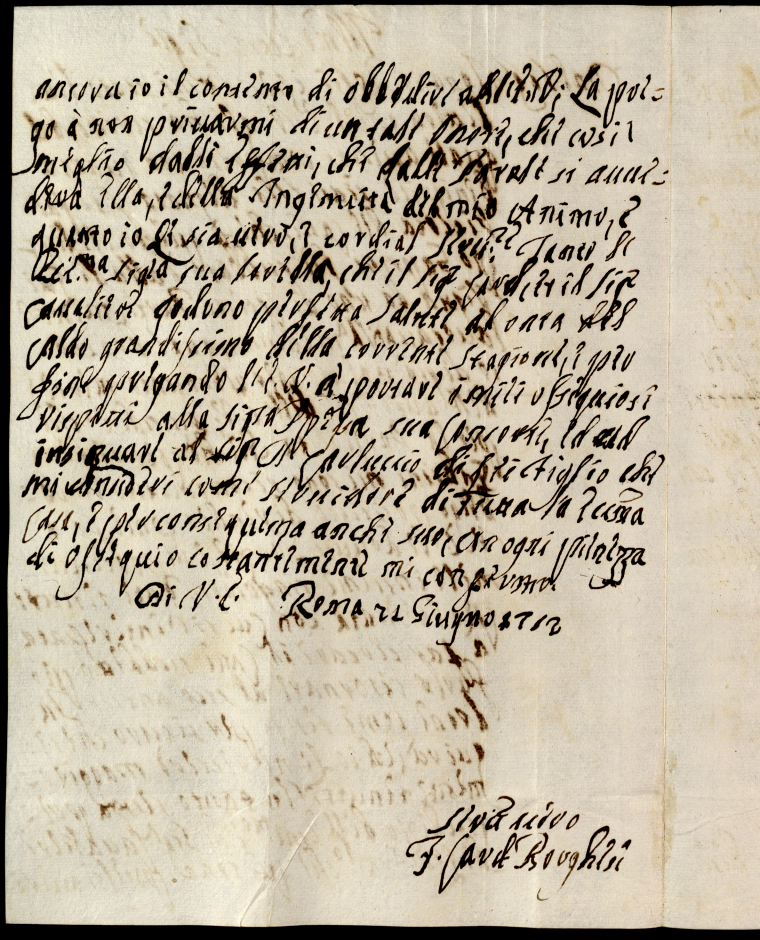 ancora io il contento di obbedire a V.E.; La prie-
go à non privarmi di un tale onore, che così
meglio dalli effetti, che dalle parole si avve-
drà Ella, e della Ingenuità del mio Animo, e
quanto io Le sia vero, e cordial Serv.re Tanto la
sig.ra sua sorella, che il sig.r Card.le, et il sig.r
Cavaliere godono perfetta salute ad onta del
caldo grandissimo della corrente stagione, e per
fine pregando l'E.V. a portare i miei ossequiosi
rispetti alla sig.ra sua Consorte, ed ad
insinuare al sig.r D. Carluccio di lei figlio che
mi consideri come servidore di tutta la sua
Casa, e per conseguenza anche suo, con ogni pienezza
di ossequio costantemente mi confermo.
Di V.E. Roma 21 Giugno 1712
Serv.re vero
F. Card. Borghese